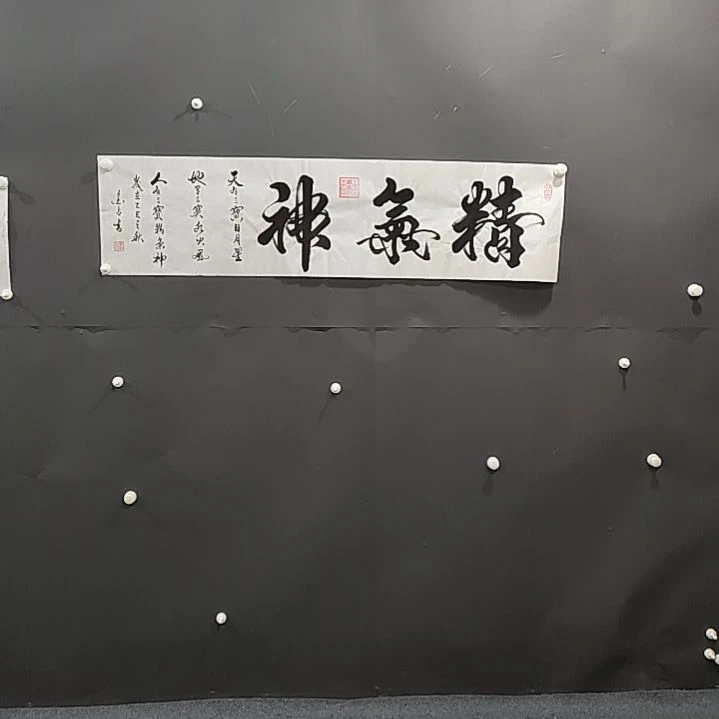 精氣神
天有三寶日月星
地有三寶水火風
人有三寶精氣神
歲在乙巳之秋